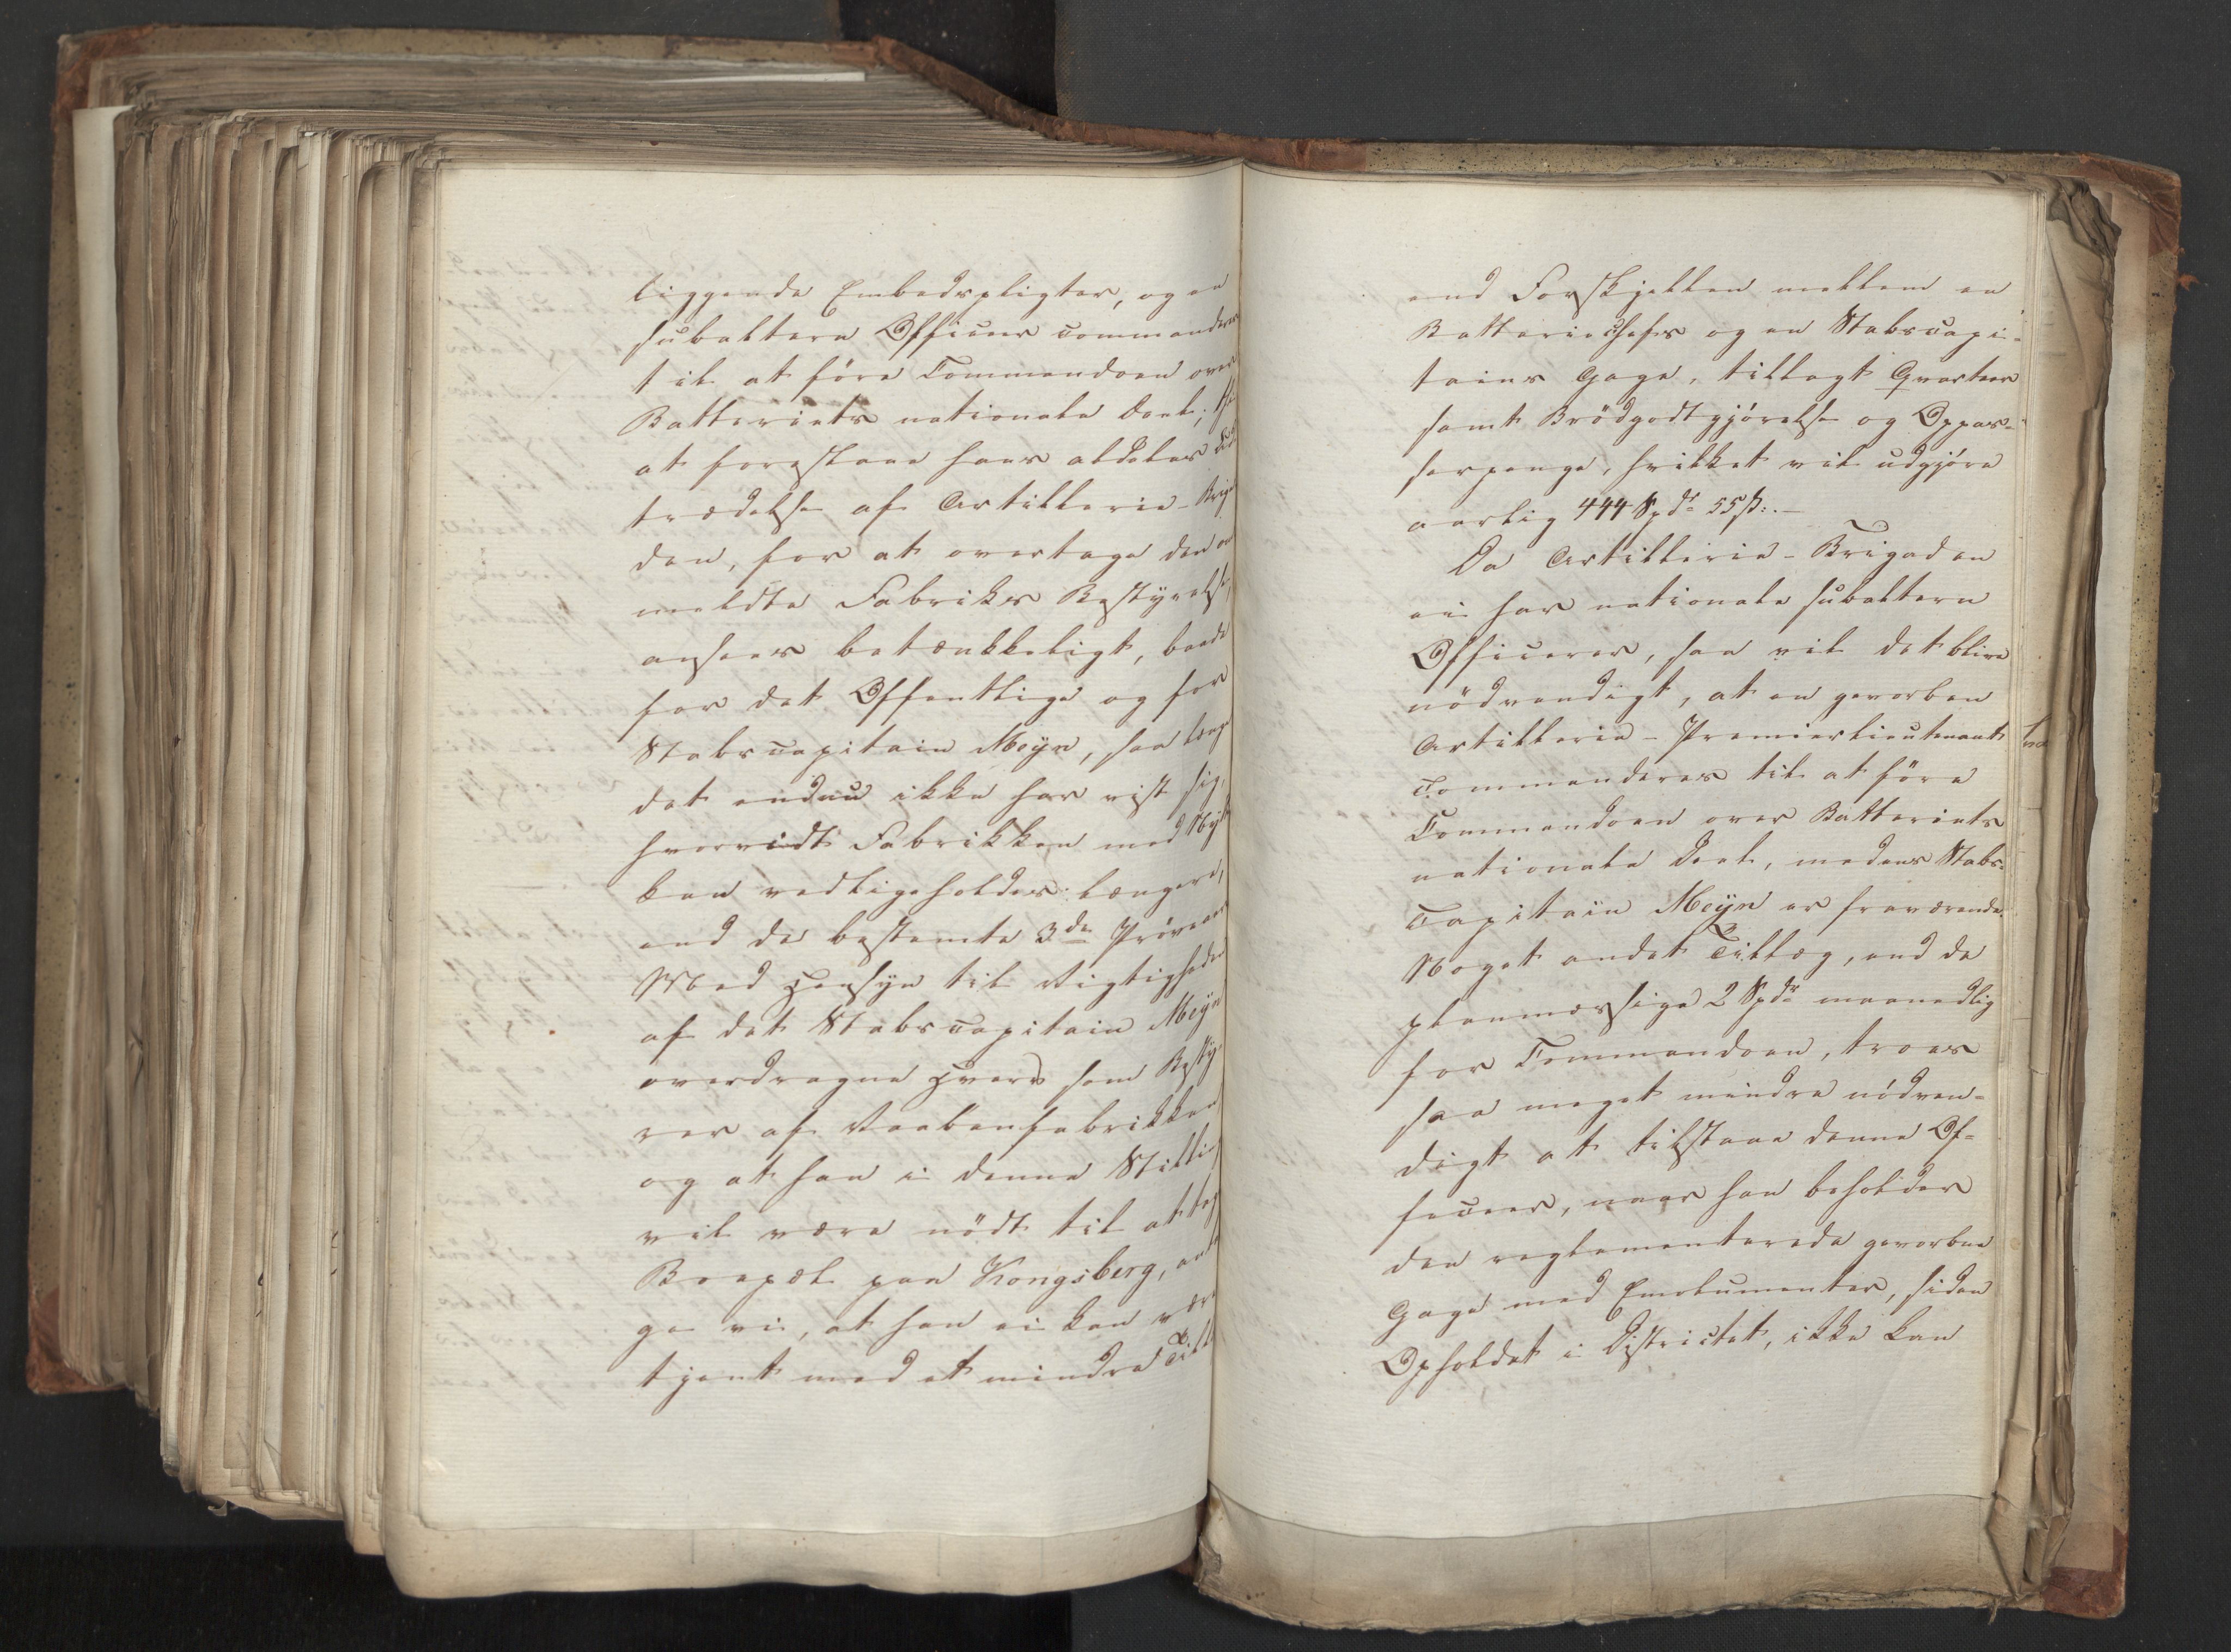 liggende Embedspligter, og en
subaltern Officeer commanderes
til at føre Commandoen over
Batteriets nationale Deel; thi
at foreslaae hans aldeles
trædelse af Artillerie-Briga
den, for at overtage den om
meldte Fabriks Bestyrelse,
ansees betænkkeligt, baade
for det Offentlige og for
Stabscapitain Meyn, saa længe
det endnu ikke har vist sig,
hvorvidt Fabrikken med Nytte
kan vedligeholdes længere,
end de bestemte 3de Prøveaar
Med Hensyn til Vigtigheden
af det Stabscapitain Meyn
overdragne Hverv som Besty-
rer af Vaabenfabrikken
og at han i denne Stilling
vil være nödt til at tage
Boepæl paa Kongsberg, anta
ge vi, at han ei kan være
tjent med et mindre Till
end Forskjellen mellem en
Batteriechefs og en Stabscapi-
tains Gage, tillagt Qvarteer
samt Brödgodtgjörelse og Oppas-
serpenge, hvilket vil udgjöre
aarlig 444 Spdr 55 ß:.-
Da Artillerie-Brigaden
ei har nationale subaltern
Officerer, saa vil det blive
nödvendigt, at en gevorben
Artillerie-Premierlieutenant
commanderes til at före
Commandoen over Batteriets
nationale Deel, medens Stabs-
Capitain Meyn er fraværende.
Noget andet Tillæg, end de
planmæssige 2 Spdr maanedlig
for Commandoen, troes
saa meget mindre nödven-
digt at tilstaae denne Of-
ficeer, naar han beholder
den reglementerede gevorbne
Gage med Emolumenter, siden
Opholdet i Districtet, ikke kan